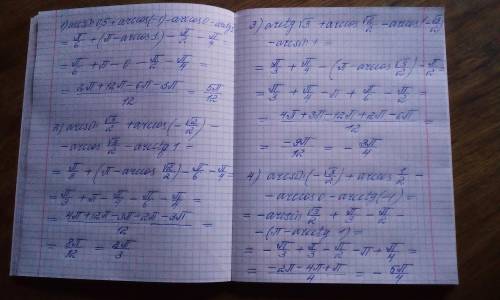 1) arcsin 0,5 + arccos(-1) - arccos 0 - arctg 1
= π/6 + (π - arccos 1) - π/2 - π/4 =
= π/6 + π - 0 - π/2 - π/4 =
= (2π + 12π - 6π - 3π)/12 = 5π/12
2) arcsin √3/2 + arccos(-√2/2) -
- arccos √3/2 - arctg 1 =
= π/3 + (π - arccos √2/2) - π/6 - π/4 =
= π/3 + π - π/4 - π/6 - π/4 =
= (4π + 12π - 3π - 2π - 3π)/12 =
= 8π/12 = 2π/3
3) arctg √3 + arccos √2/2 - arccos(-√3/2)
- arcsin 1 =
= π/3 + π/4 - (π - arccos √3/2) - π/2 =
= π/3 + π/4 - π + π/6 - π/2 =
= (4π + 3π - 12π + 2π - 6π)/12 =
= -9π/12 = -3π/4
4) arcsin(-√3/2) + arccos 1/2 -
- arccos 0 - arctg(-1) =
= -arcsin √3/2 + π/3 - π/2 -
- (π - arctg 1) =
= -π/3 + π/3 - π/2 - π + π/4 =
= (-2π - 4π + π)/4 = -5π/4